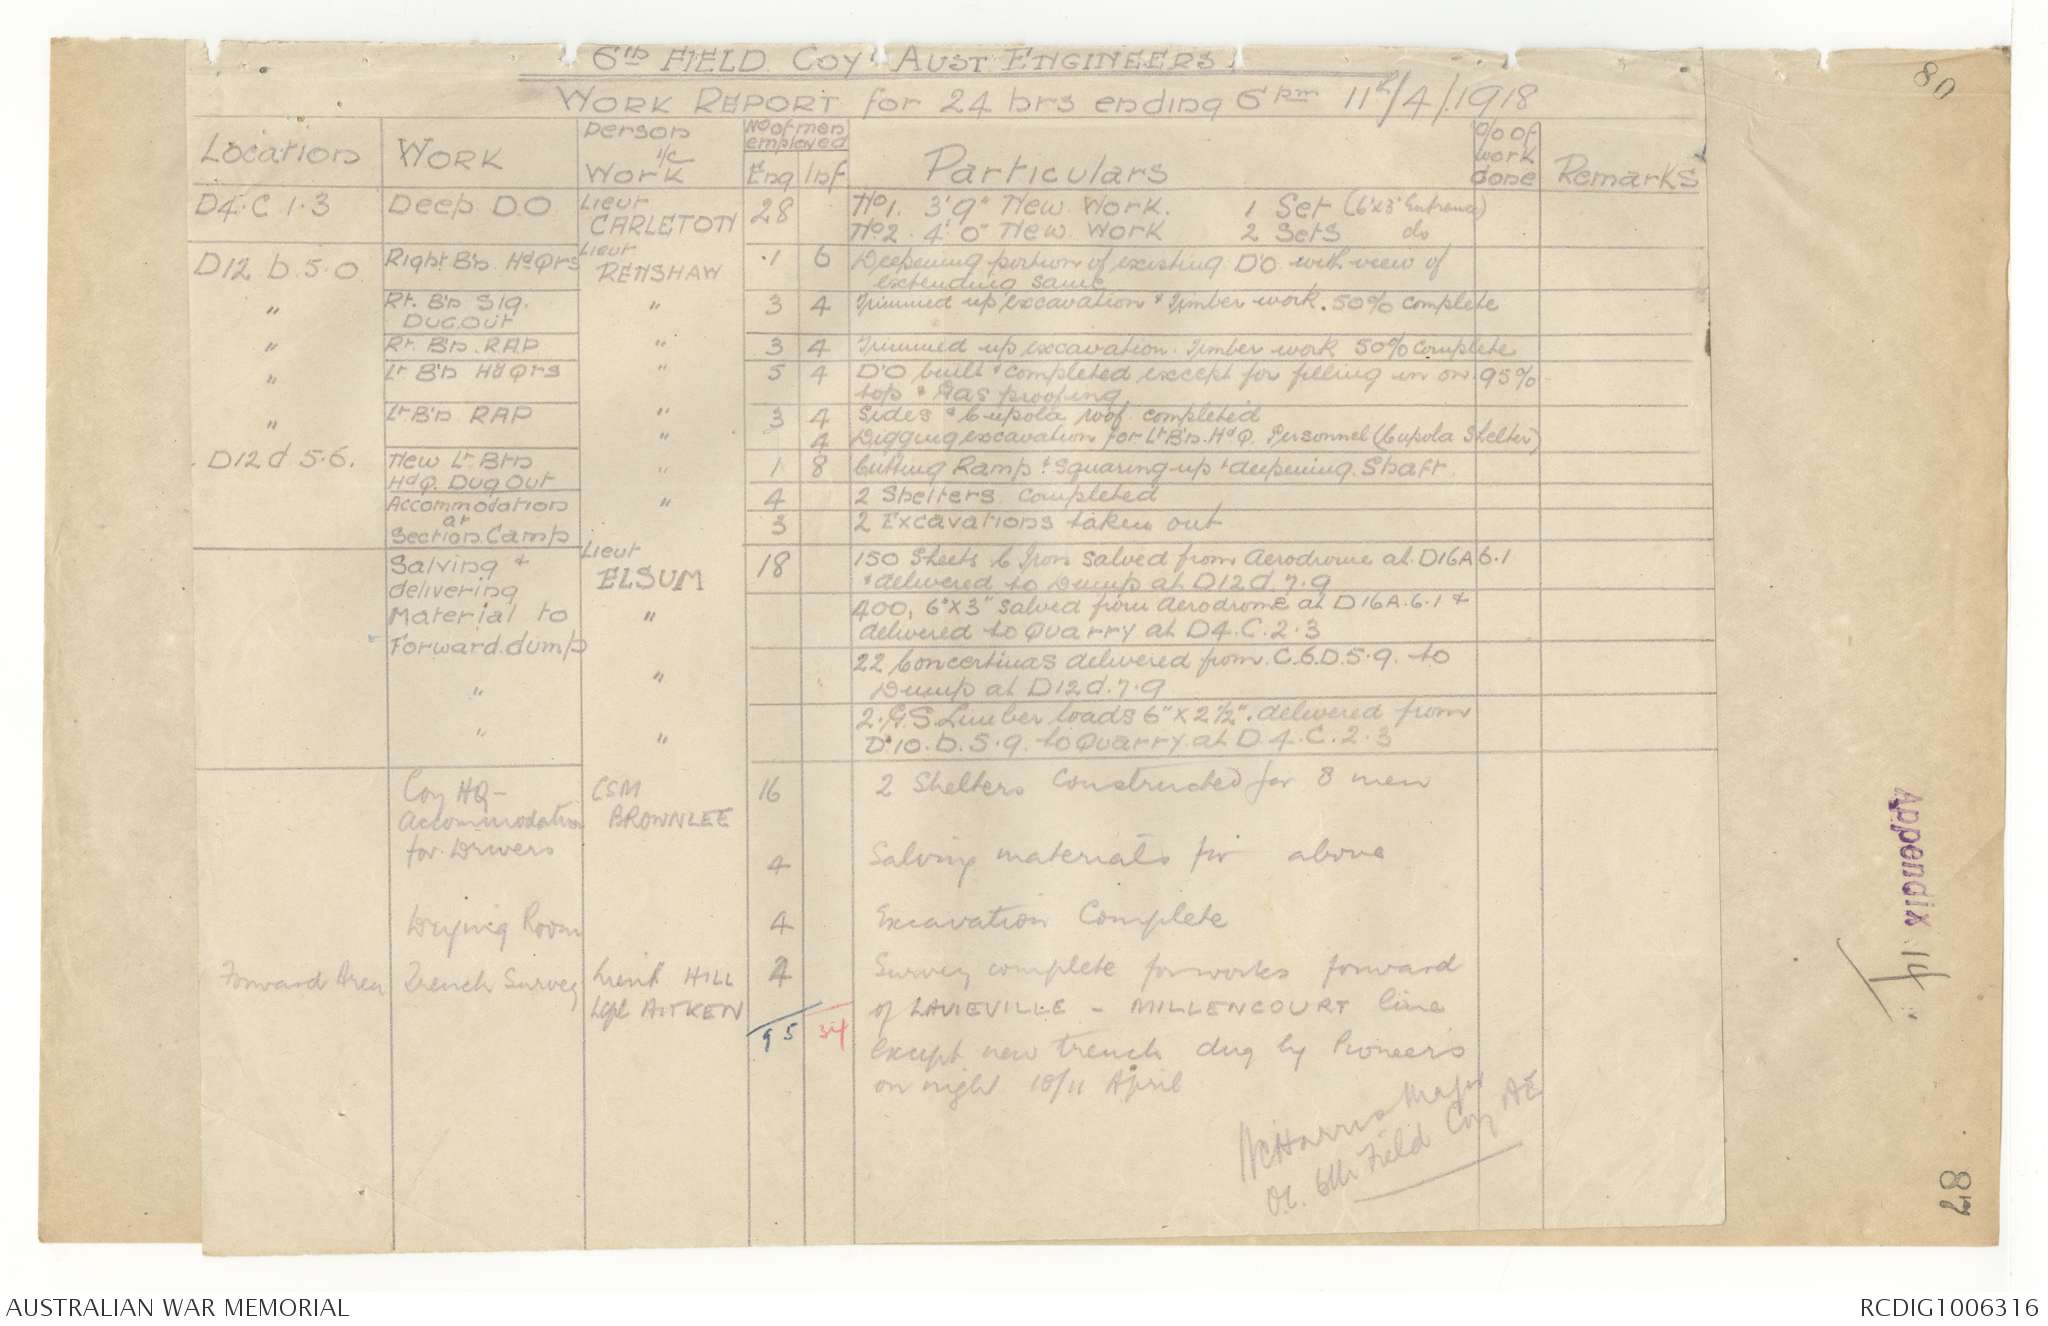 6th FIELD COY AUST ENGINEERS.
WORK REPORT for 24 hrs ending 6pm 11th/4/1918
Location WORK Person i/c Work No of men employed Eng Inf Particulars % of work done Remarks
D4.C 1.3 Deep D.O Lieut CARLETON 28 No 1. 3' 9" New Work. 1 Set (6'x3' Entrance)
No 2. 4' 0" New Work 2 Sets do
D12 b.5.0 Right B'n. Hd Qrs Lieut RENSHAW 1 6 Deepening portion of existing D'O with view of
extending same
" Rt. B'n Sig. Dug.Out " 3 4 Trimmed up excavation & Timber work. 50% complete
" Rt. B'n. RAP " 3 4 Trimmed up excavation. Timber work 50% complete
" Lt B'n Hd Qrs " 5 4 D'O built & completed except for filling in on 95%
top & Gas proofing
" Lt B'n RAP " 3 4 Sides & Cupola roof completed
" 4 Digging excavation for Lt B'n. HdQ. Personnel (Cupola Shelter)
D12 d 5.6. New Lt Btn HdQ. Dug Out " 1 8 Cutting Ramp & squaring-up & deepening. Shaft.
Accommodation at Section Camp " 4 2 Shelters completed
3 2 Excavations taken out
Salving & delivering Material to Forward dump Lieut ELSUM 18 150 Sheets C Iron salved from Aerodrome at D16A 6.1
& delivered to Dump at D12d.7.9
" 400, 6"X3" salved from Aerodrome at D16A.6.1 &
delivered to Quarry at D4.C.2.3
" " 22 Concertinas delivered from C.6.D.5.9. to
Dump at D12d.7.9
" " 2.G.S.Limber loads 6"X2½". delivered from
D.10.D.5.9. to Quarry at D.4.C.2.3
Coy HQ - Accommodation for Drivers CSM BROWNLEE 16 2 Shelters Constructed for 8 men
4 Salving materials for above
Drying Room 4 Excavation Complete
Forward Area Trench Survey Lieut HILL 2 Survey complete for works forward
Lcpl AITKEN of LAVIEVILLE - MILLENCOURT line
95 34
except new trench dug by Pioneers
on night 10/11 April
Harris Major
O.C. 6th Field Coy AE
80
Appendix 14
87
AUSTRALIAN WAR MEMORIAL
RCDIG1006316